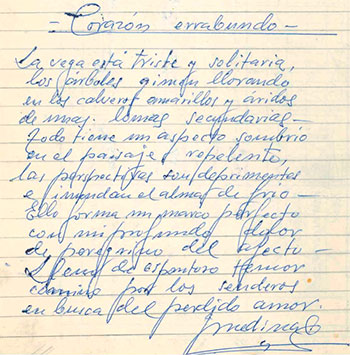 = Corazón errabundo =
La vega está triste y solitaria,
los árboles gimen llorando
en los calveros amarillos y áridos
de unas lomas secundarias -
Todo tiene un aspecto sombrío
en el paisaje repelente,
las perspectivas son deprimentes
e inundan el alma de frío -
Ello forma un marco perfecto
con mi profundo dolor
de peregrino del afecto -
Lleno de espantoso temor
camino por los senderos
en busca del perdido amor.